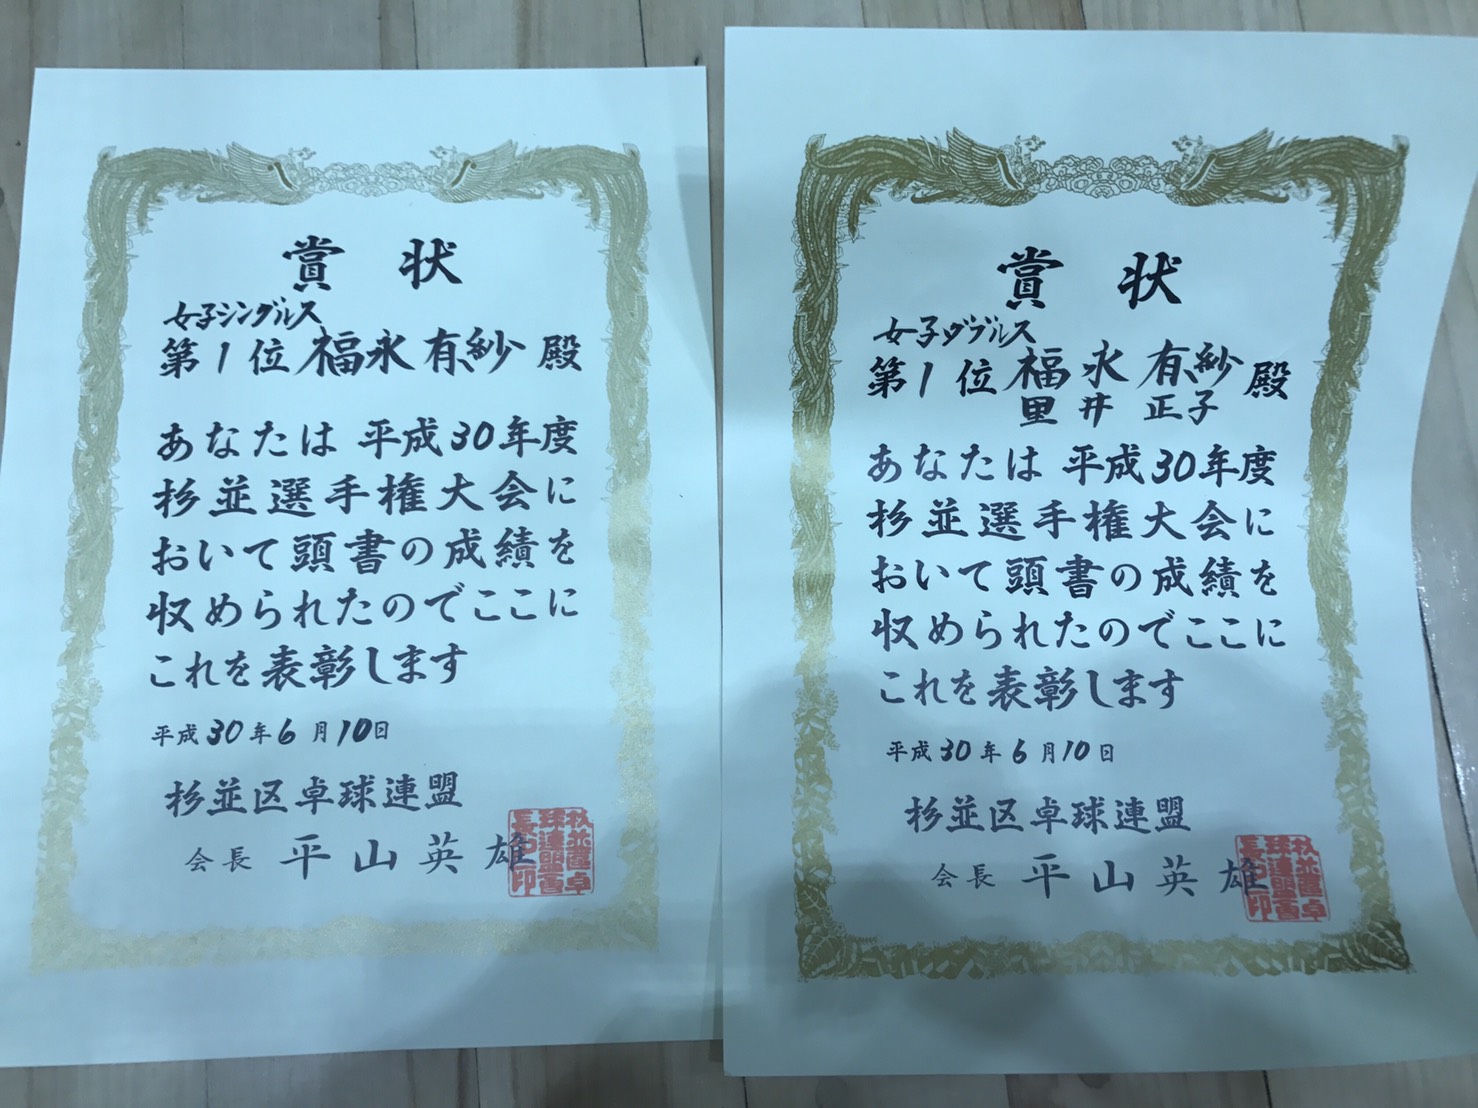 賞状
女子シングルス
第1位 福永有紗 殿
あなたは平成30年度
杉並選手権大会に
おいて頭書の成績を
収められたのでここに
これを表彰します
平成30年6月10日
杉並区卓球連盟
会長 平山英雄
杉並区卓球連盟会長之印
賞状
女子ダブルス
第1位 福永有紗 殿
里井正子
あなたは平成30年度
杉並選手権大会に
おいて頭書の成績を
収められたのでここに
これを表彰します
平成30年6月10日
杉並区卓球連盟
会長 平山英雄
杉並区卓球連盟会長之印